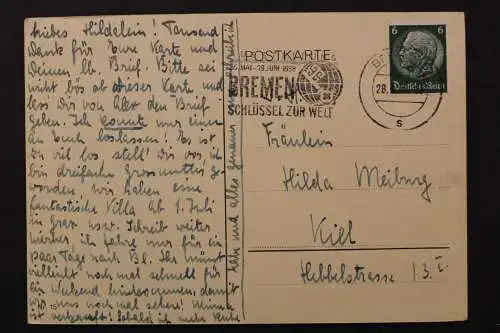 liebes Hildelein! Tausend
Dank für Eure Karte und
Deinen lb. Brief. Bitte sei
nicht bös ab dieser Karte und
lies Dir von aller den Brief
geben. Ich konnte nur einen
an Euch loslassen! Es ist
so viel los, stell' Dir vor, ich
bin dreifache Grossmutter ge-
worden, wir haben eine
fantastische Villa ab 1. Juli
in Graz usw. Schreib weiter
hierher, ich fahre nur für ein
paar Tage nach Bl. Ihr müsst
vielleicht noch mal schnell für
ein Wochend hierherkommen, damit
wir uns noch mal sehen!
ist verkauft! Sobald ich mehr Ruhe
habe und alles genauer
POSTKARTE
MAI - 19. JUNI 1938
BREMEN
SCHLÜSSEL ZUR WELT
28.
S
6 6
Deutsches Reich
Fräulein
Hilda Meiburg
Kiel
Hebbelstrasse 13. I.